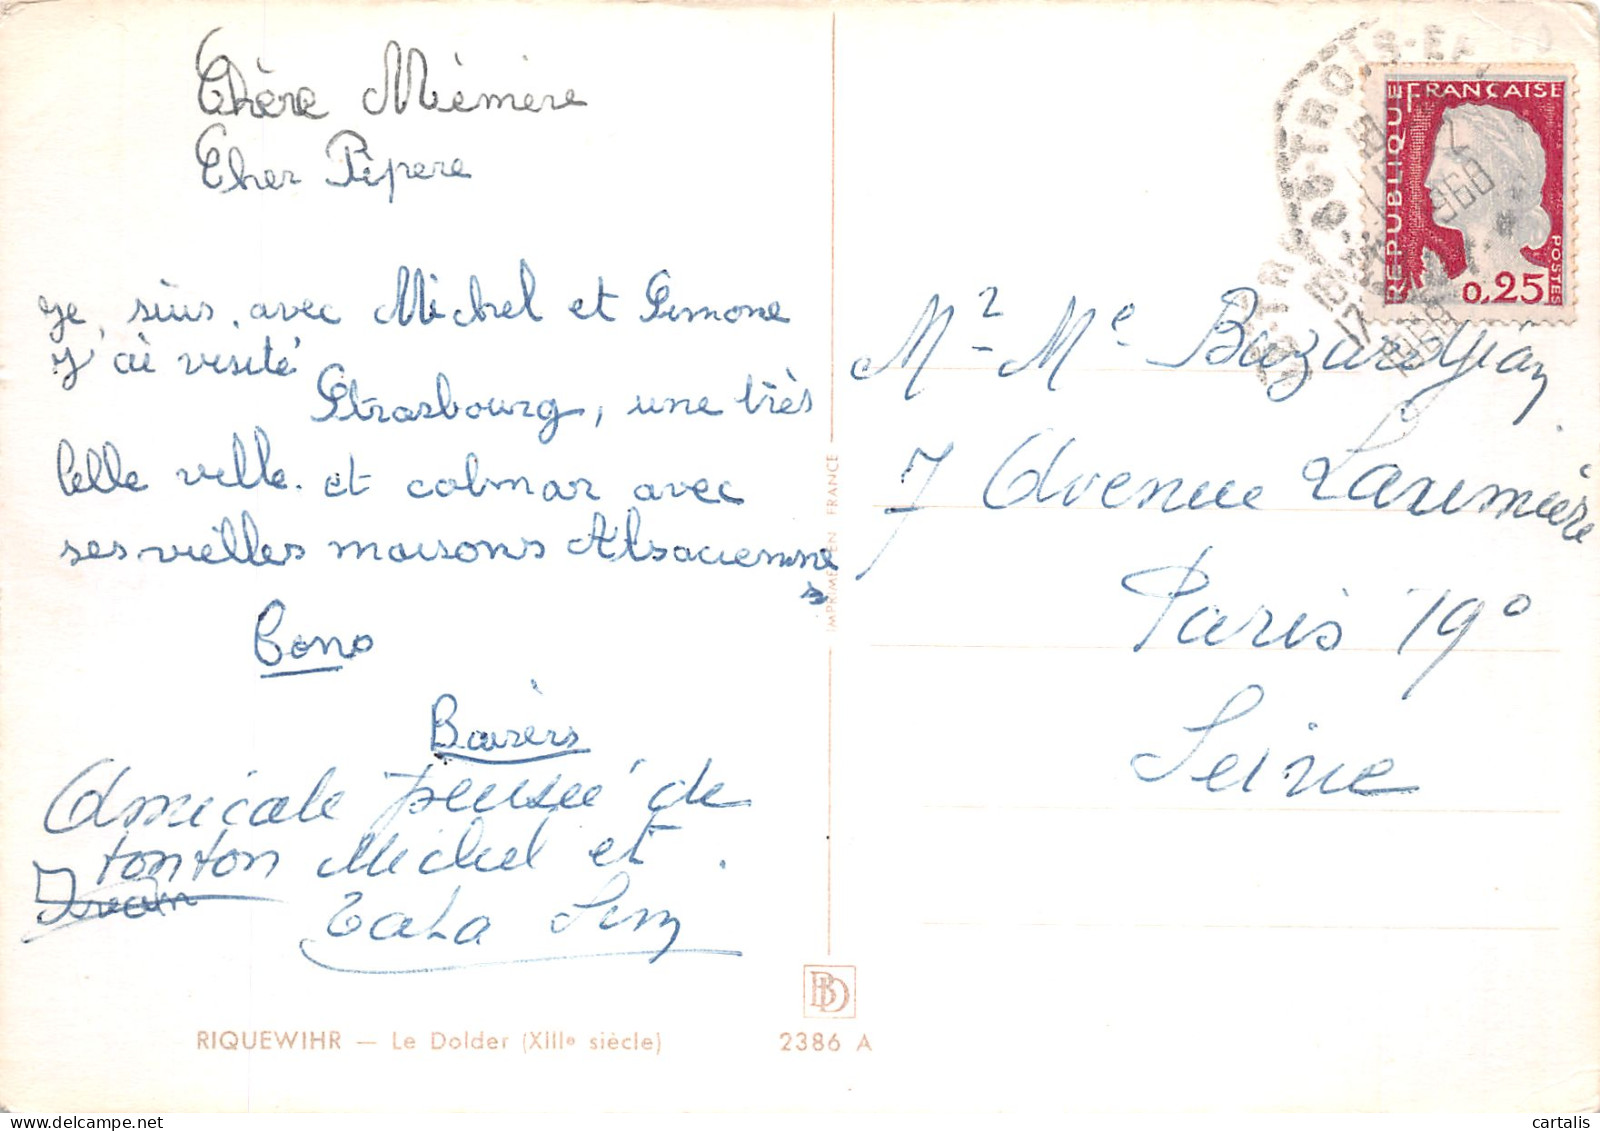 Chère Mémère
Cher Pépere
je suis avec Michel et Simone
J'ai visité
Strasbourg, une très
belle ville. et colmar avec
ses vielles maisons Alsacienne
s
Bons
Baisers
Amicale pensée de
tonton Michel et
tata Sim
RIQUEWIHR — Le Dolder (XIIIe siècle)
BD
2386 A
IMPRIMÉ EN FRANCE
RÉPUBLIQUE FRANÇAISE
POSTES
0,25
TROIS-ÉPIS
1968
Mr Me Bazardjian
7 Avenue Laumière
Paris 19e
Seine
cartalis